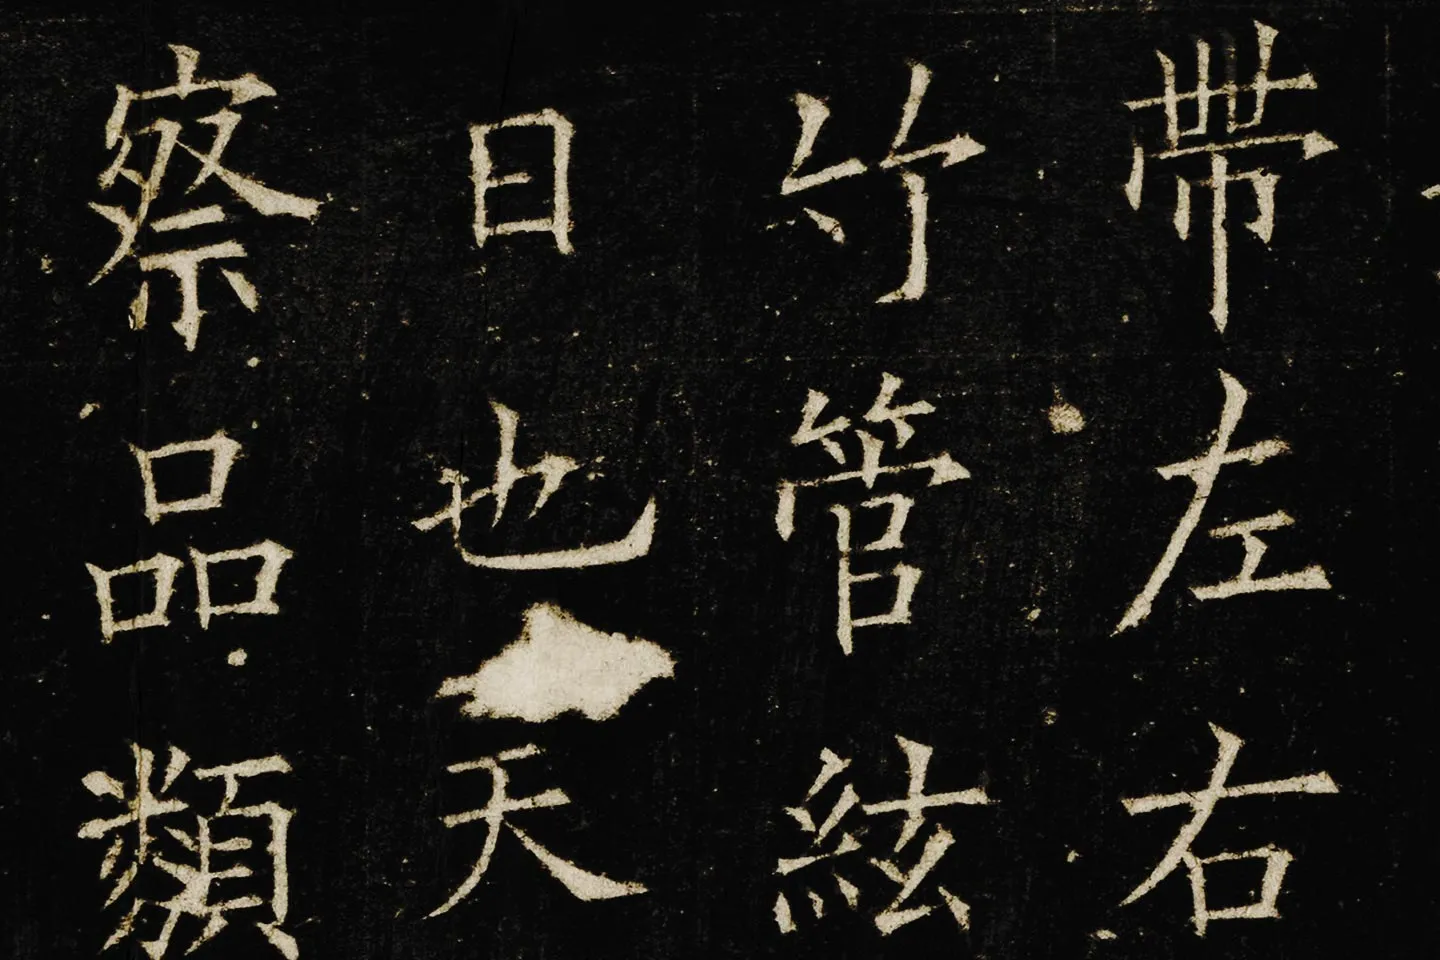 帶左右
竹管絃
日也天
察品類